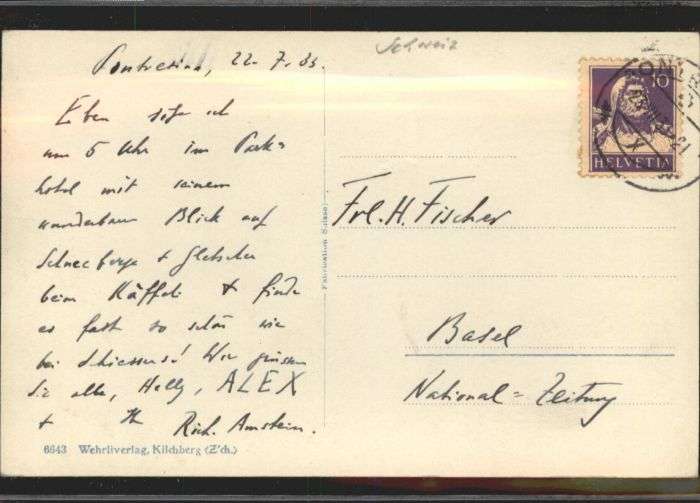 Schweiz
Pontresina, 22.7.33.
Eben sitze ich
um 5 Uhr im Park=
hotel mit seinem
wunderbaren Blick auf
Schneeberge + Gletscher
beim Käffeli + finde
es fast so schön wie
bei Schiessers! Wir grüssen
Sie alle, Helly, ALEX
+ Ihr Rich. Amstein.
6643 Wehrliverlag, Kilchberg (Z'ch.)
Fabrication Suisse
10
HELVETIA
Frl. H. Fischer
Basel
National=Zeitung